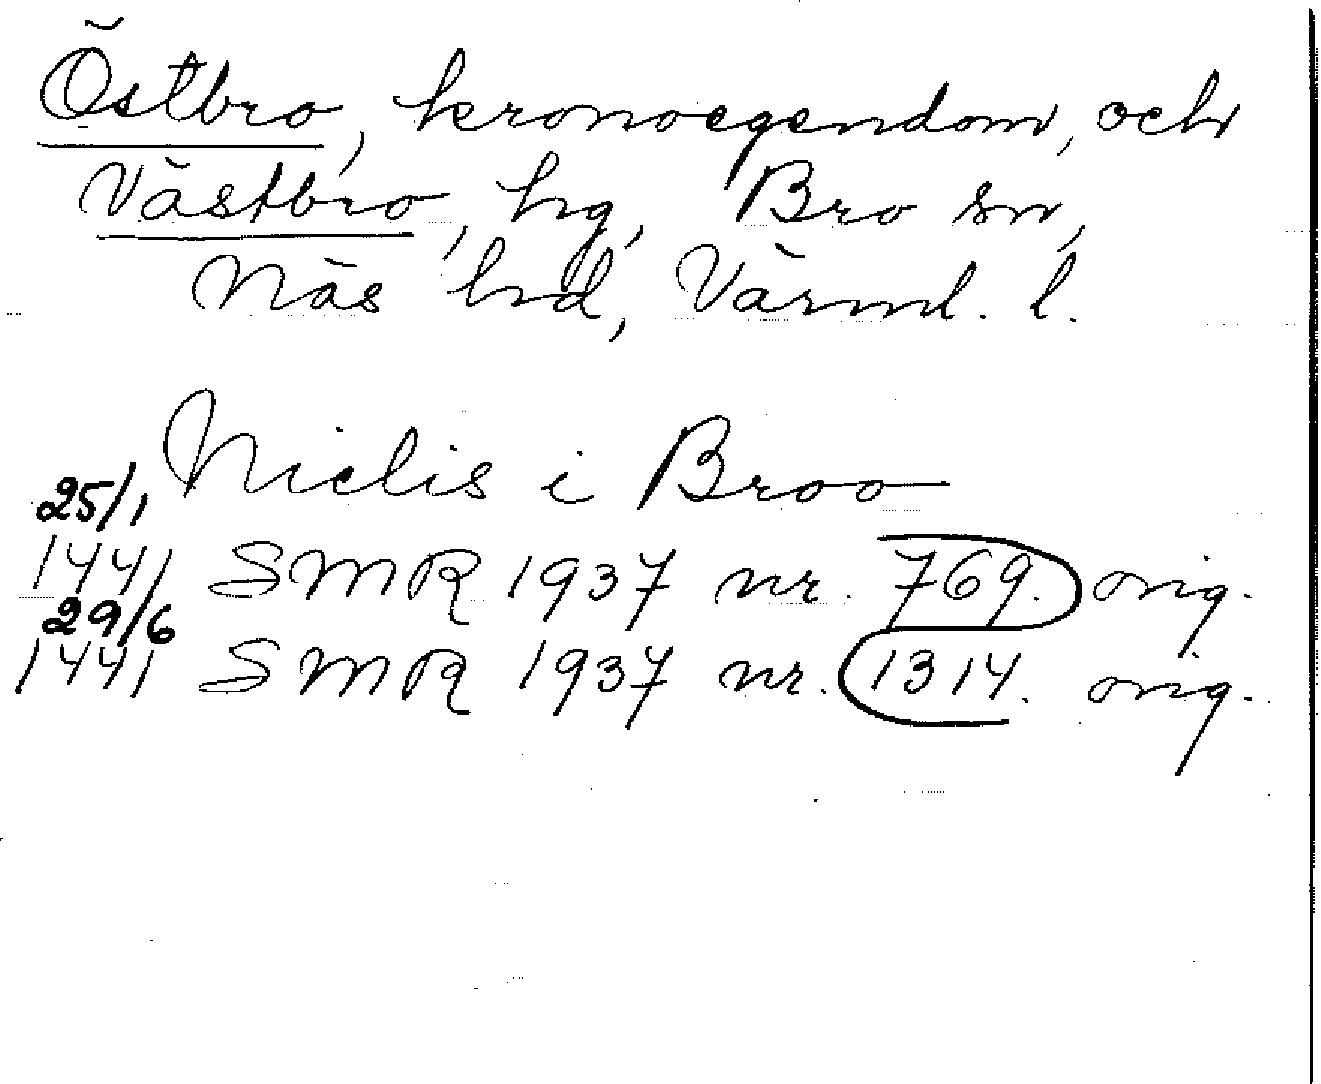 Östbro, kronoegendom, och
Västbro, hg, Bro sn,
Näs hd, Värml. l.
Nielis i Broo
25/1
1441 SMR 1937 nr. 769. orig.
29/6
1441 SMR 1937 nr. 1314. orig.